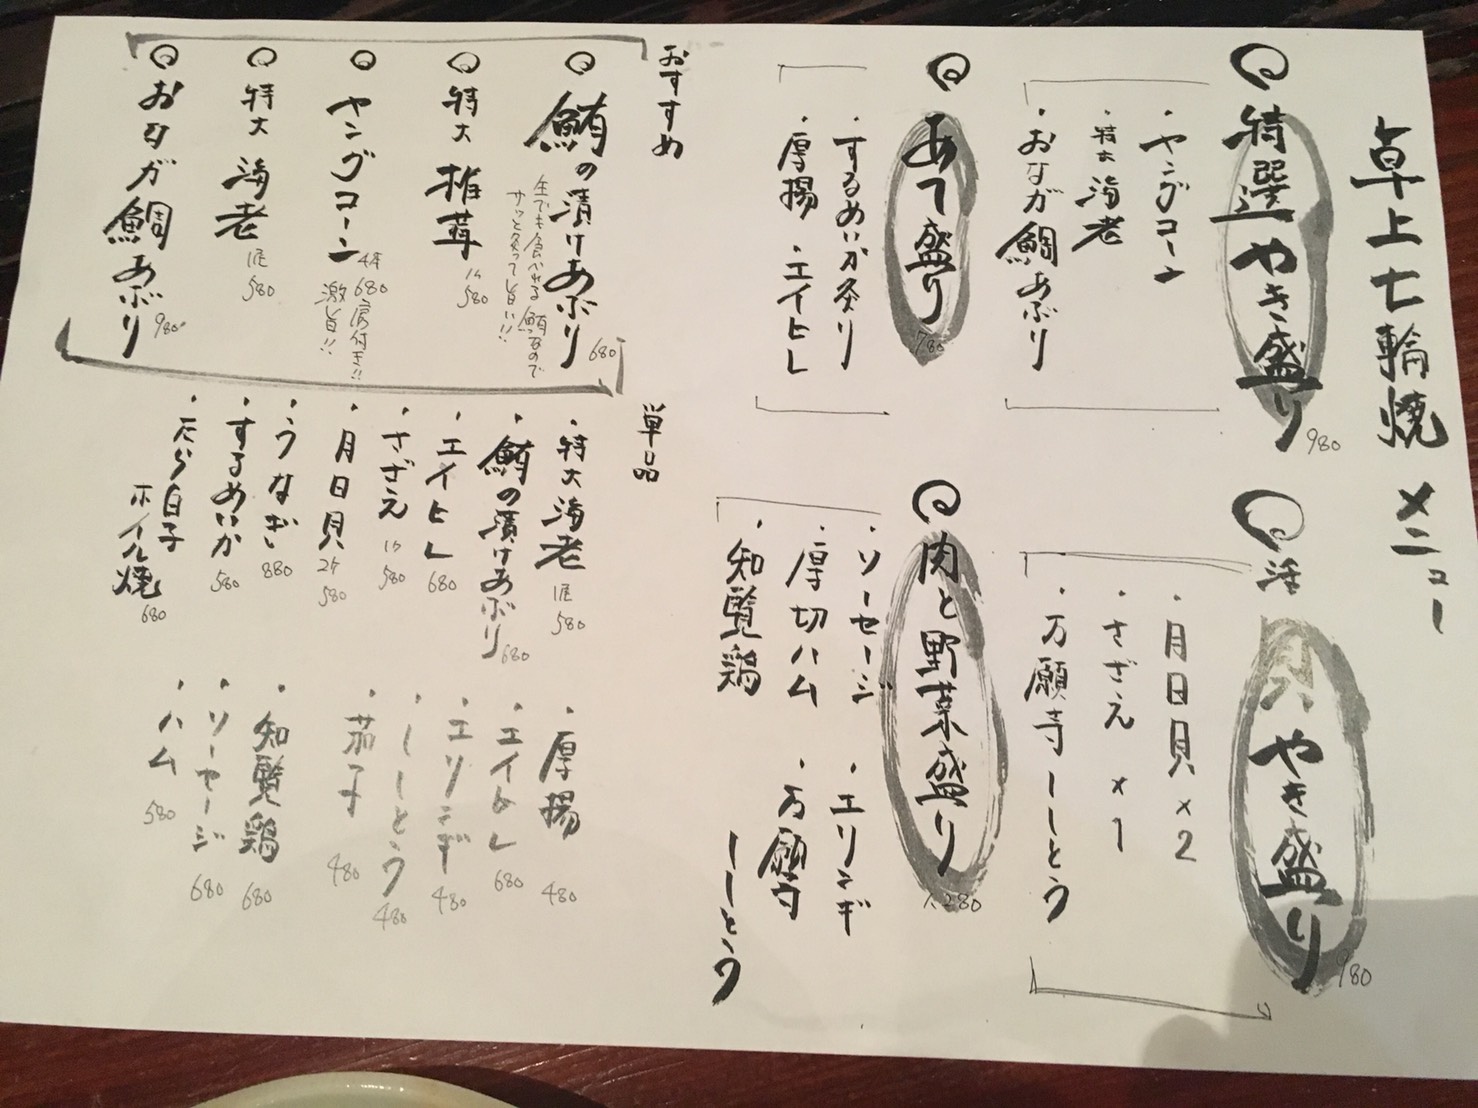 卓上七輪焼メニュー
特選やき盛り 980
・ヤングコーン
・特大海老
・おながり鯛あぶり
活貝やき盛り 980
・月日貝×2
・さざえ×1
・万願寺ししとう
あて盛り 780
・するめいか炙り
・厚揚 ・エイヒレ
肉と野菜盛り 1,280
・ソーセージ ・エリンギ
・厚切ハム ・万願寺
ししとう
・知覧鶏
おすすめ
鮪の漬けあぶり 680
生でも食べれる鮪なので
サッと炙って旨い!!
特大椎茸 1ケ 580
ヤングコーン 4本 680 房付き!!
激旨!!
特大海老 1尾 580
おながり鯛あぶり 980
単品
・特大海老 1尾 580
・鮪の漬けあぶり 680
・エイヒレ 680
・さざえ 1ケ 580
・月日貝 2ケ 580
・うなぎ 880
・するめいか 580
・たら白子
ホイル焼 680
・厚揚 480
・エイヒレ 680
・エリンギ 480
・ししとう 480
・茄子 480
・知覧鶏 680
・ソーセージ 680
・ハム 580